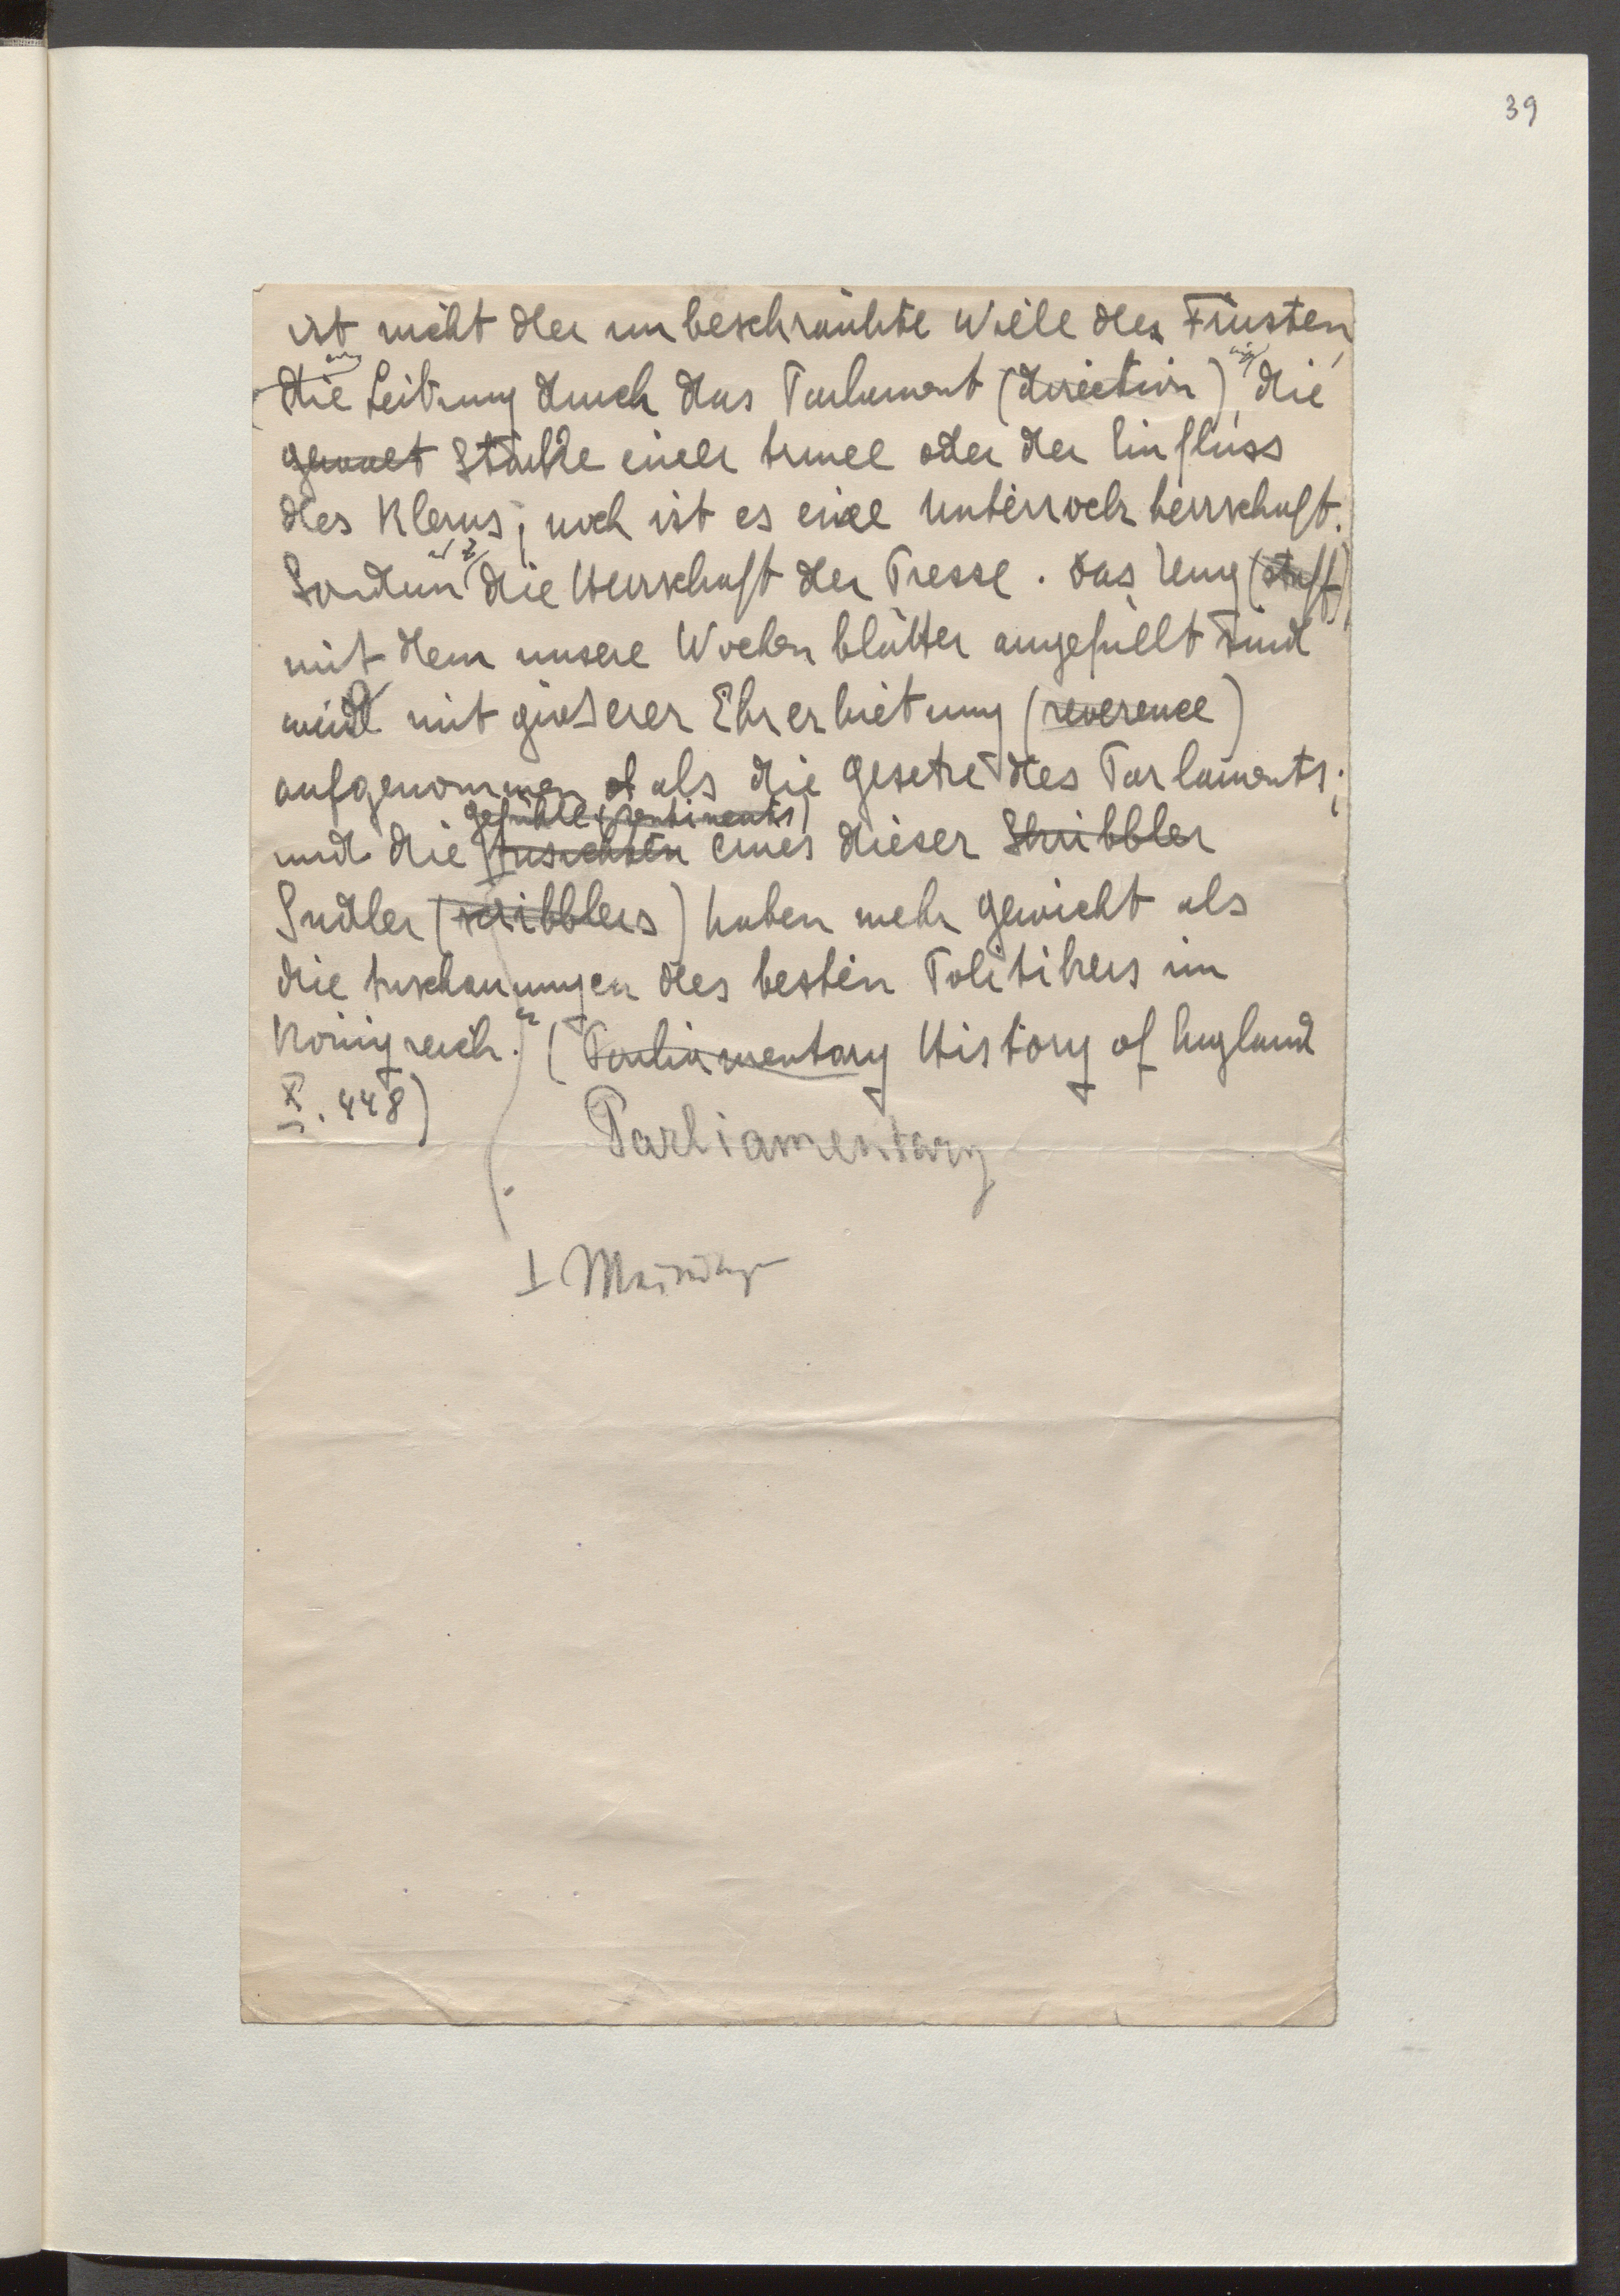 39
ist nicht der unbeschränkte Wille des Fürsten,
die Leitung durch das Parlament (direction), die
gewalt Stärke einer Armee oder der Einfluss
des Klerus; noch ist es eine Unterrockherrschaft.
Sondern die Herrschaft der Presse. Das Zeug (stuff)
mit dem unsere Wochenblätter angefüllt sind
wird mit grösserer Ehrerbietung (reverence)
aufgenommen als die Gesetze des Parlaments;
Gefühle (sentiments)
und die Ansichten eines dieser Skribbler
Sudler (scribblers) haben mehr Gewicht als
die Anschauungen des besten Politikers im
Königreich." (Parliamentary History of England
X. 448)
Parliamentary
I